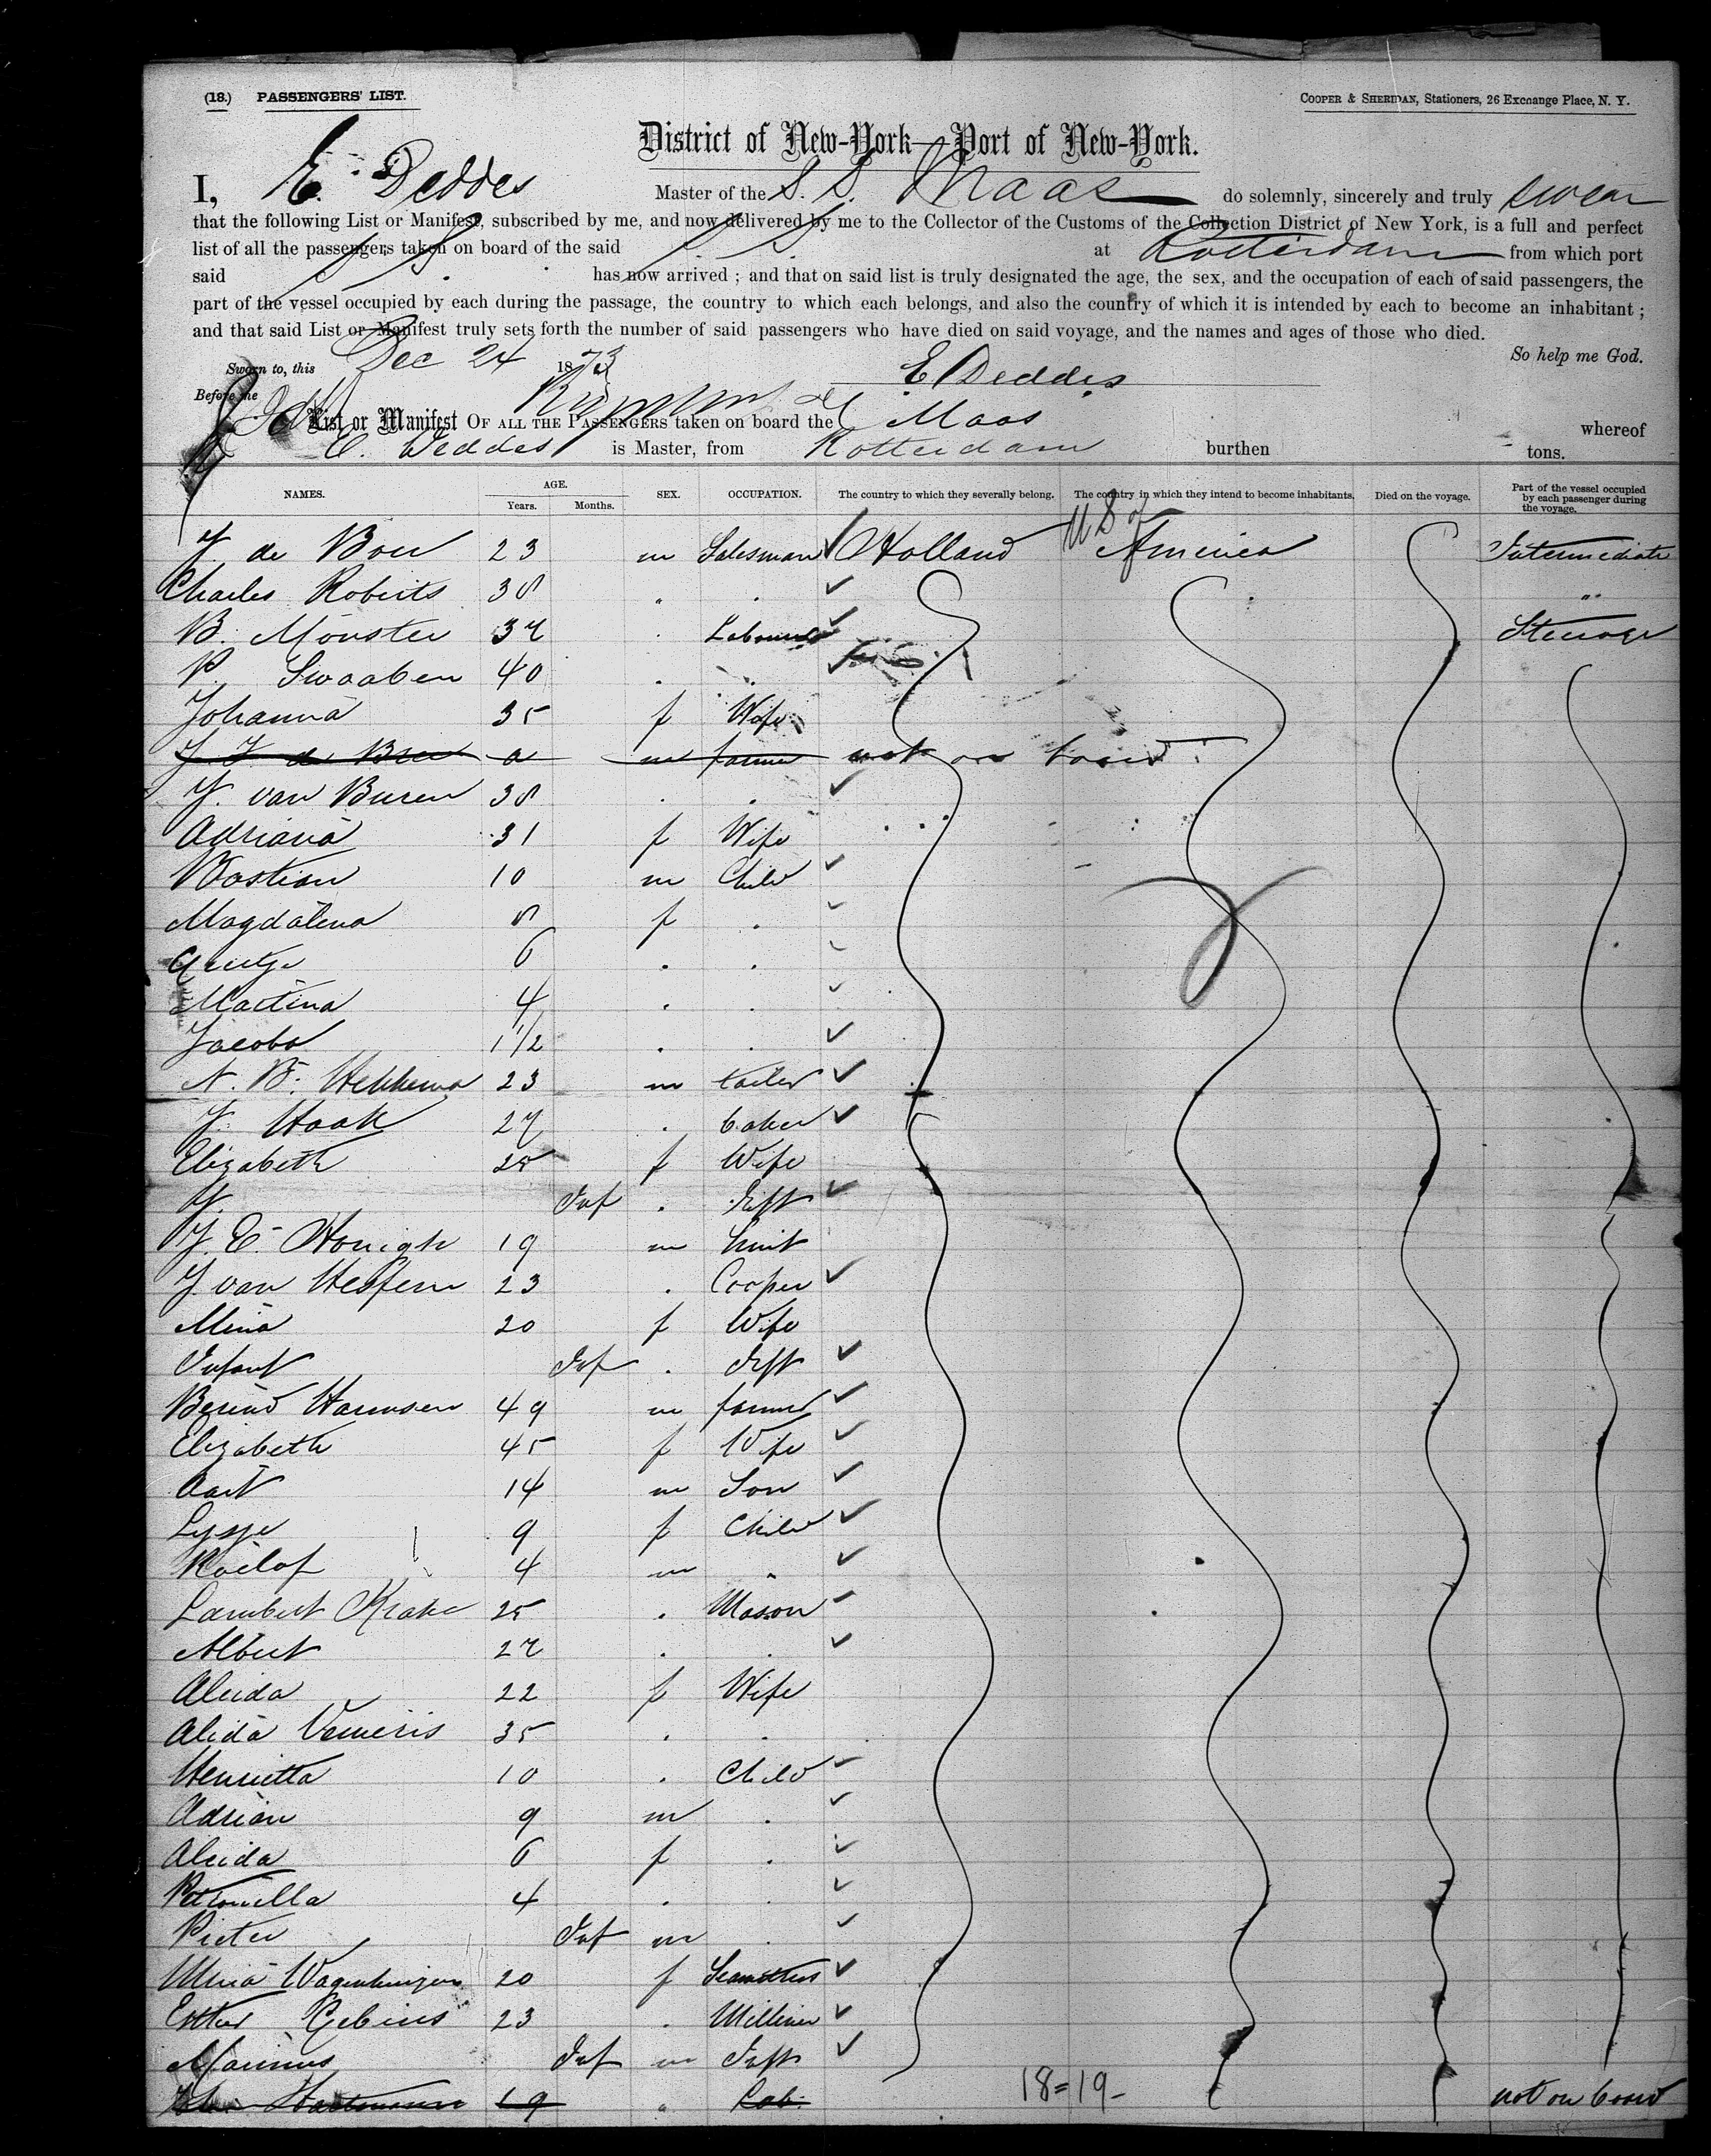 (18.) PASSENGERS' LIST.
COOPER & SHERIDAN, Stationers, 26 Exchange Place, N. Y.
District of New-York—Port of New-York.
I, E. Deddes Master of the S. S. Maas do solemnly, sincerely and truly swear
that the following List or Manifest, subscribed by me, and now delivered by me to the Collector of the Customs of the Collection District of New York, is a full and perfect
list of all the passengers taken on board of the said S. S. at Rotterdam from which port
said S. S. has now arrived ; and that on said list is truly designated the age, the sex, and the occupation of each of said passengers, the
part of the vessel occupied by each during the passage, the country to which each belongs, and also the country of which it is intended by each to become an inhabitant ;
and that said List or Manifest truly sets forth the number of said passengers who have died on said voyage, and the names and ages of those who died.
So help me God.
Sworn to, this Dec 24 1873 E Deddes
Before me
List or Manifest OF ALL THE PASSENGERS taken on board the Maas whereof
E. Deddes is Master, from Rotterdam burthen tons.
NAMES. AGE. Years. Months. SEX. OCCUPATION. The country to which they severally belong. The country in which they intend to become inhabitants. Died on the voyage. Part of the vessel occupied by each passenger during the voyage.
J de Boer 23 m Salesman Holland U S of America Intermediate
Charles Roberts 38 " . "
B. Monster 37 . Labourer Steerage
P. Swaaben 40 . .
Johanna 35 f Wife
m farmer not on board
J. van Buren 38 . .
Adriana 31 f Wife
Bastian 10 m Child
Magdalena 8 f .
Grietje 6 . .
Martina 4 . .
Jacoba 1 1/2 . .
N. B. Hekkema 23 m tailor
J. Haak 27 . baker
Elizabeth 25 f Wife
J. Inf .
J. E. Honigh 19 m Smit
J van Hespen 23 . Cooper
Mina 20 f Wife
Infant Inf .
Berend Harmsen 49 m farmer
Elizabeth 45 f Wife
Aart 14 m Son
9 f Child
Roelof 4 m "
Lambert Krake 25 . Mason
Albert 27 . .
Aleida 22 f Wife
Alida 35 . .
Henrietta 10 . Child
Adrian 9 m .
Aleida 6 f .
Petronella 4 . .
Pieter Inf m .
Mina Wagenhuizen 20 f Seamstress
Esther Gebius 23 . Milliner
Marinus Inf m
Hartmann 19 " Lab. not on board
18=19-